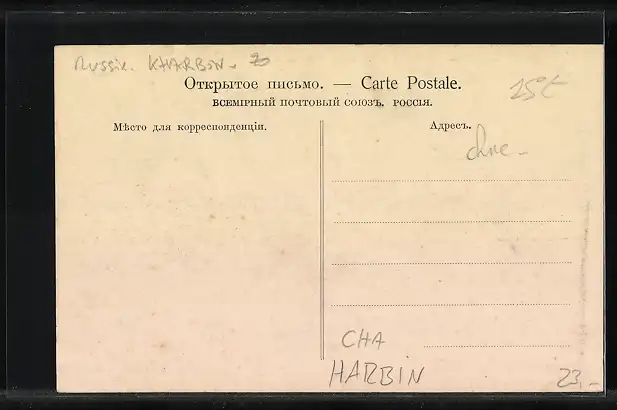 Russie. KHARBIN -
Открытое письмо. — Carte Postale.
25€
ВСЕМІРНЫЙ ПОЧТОВЫЙ СОЮЗЪ. РОССІЯ.
Мѣсто для корреспонденціи.
Адресъ.
chne -
CHA
HARBIN
23,-